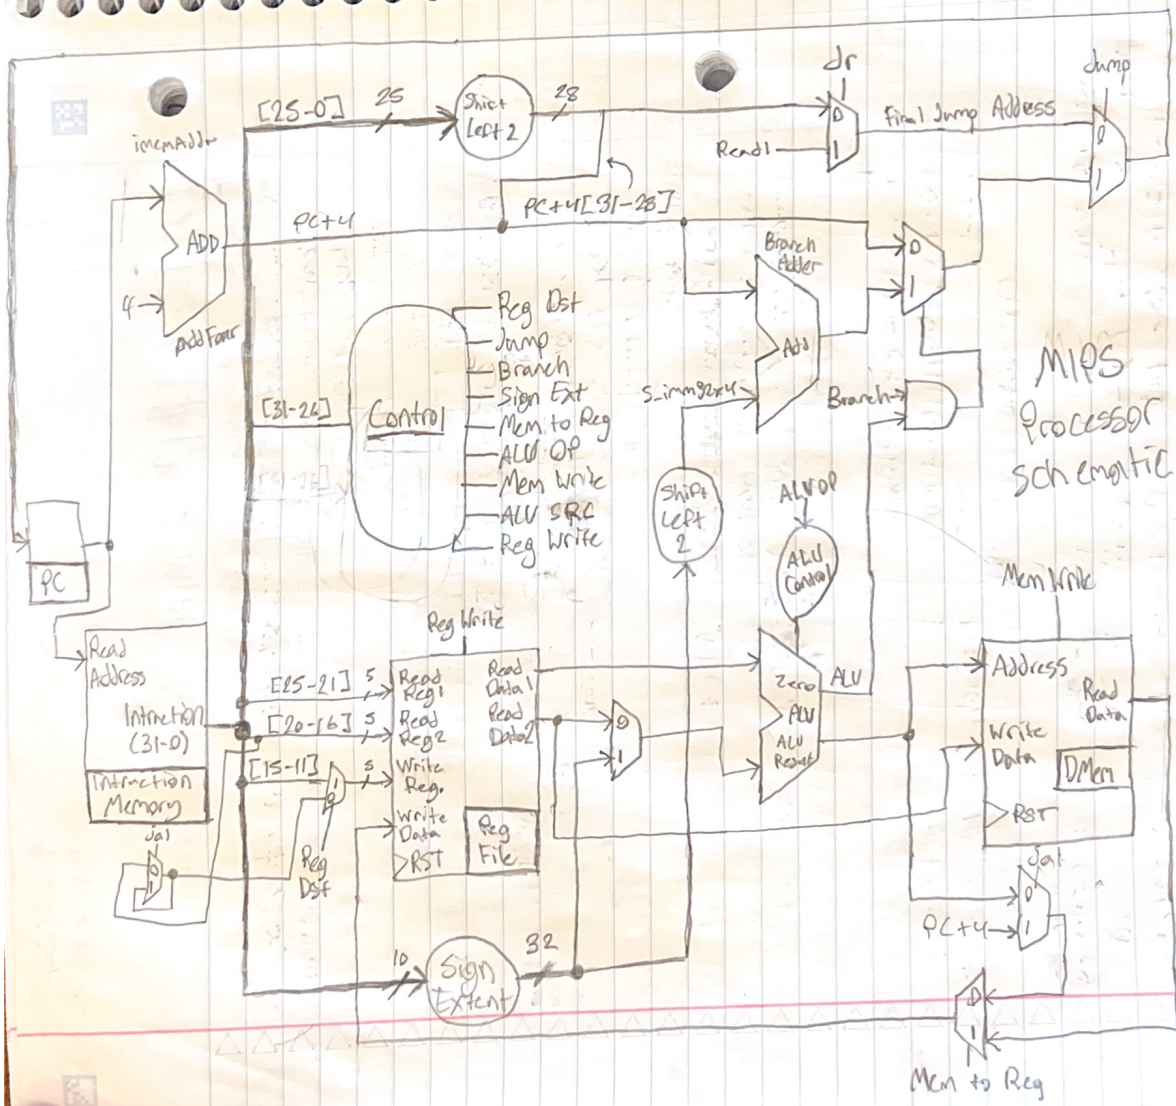 Jr
Jump
[25-0]
25
Shift
Left 2
28
0
1
Final Jump Address
Read1
0
1
imemAddr
ADD
4
Add Four
PC+4
PC+4[31-28]
Branch
Adder
Add
0
1
Reg Dst
Jump
Branch
Sign Ext
Mem to Reg
ALU OP
Mem Write
ALU SRC
Reg Write
[31-26]
Control
S_imm32x4
Branch
MIPS
Processor
Schematic
Shift
Left
2
ALU OP
ALU
Control
PC
Mem Write
Read
Address
Intruction
(31-0)
Intruction
Memory
Reg Write
[25-21]
5
[20-16]
5
[15-11]
5
1
0
Read
Reg1
Read
Reg2
Write
Reg.
Write
Data
RST
Read
Data1
Read
Data2
Reg
File
0
1
Zero
ALU
ALU
Result
ALU
Address
Read
Data
Write
Data
DMem
RST
Jal
0
1
Reg
Dst
Jal
0
1
PC+4
10
Sign
Extent
32
0
1
Mem to Reg